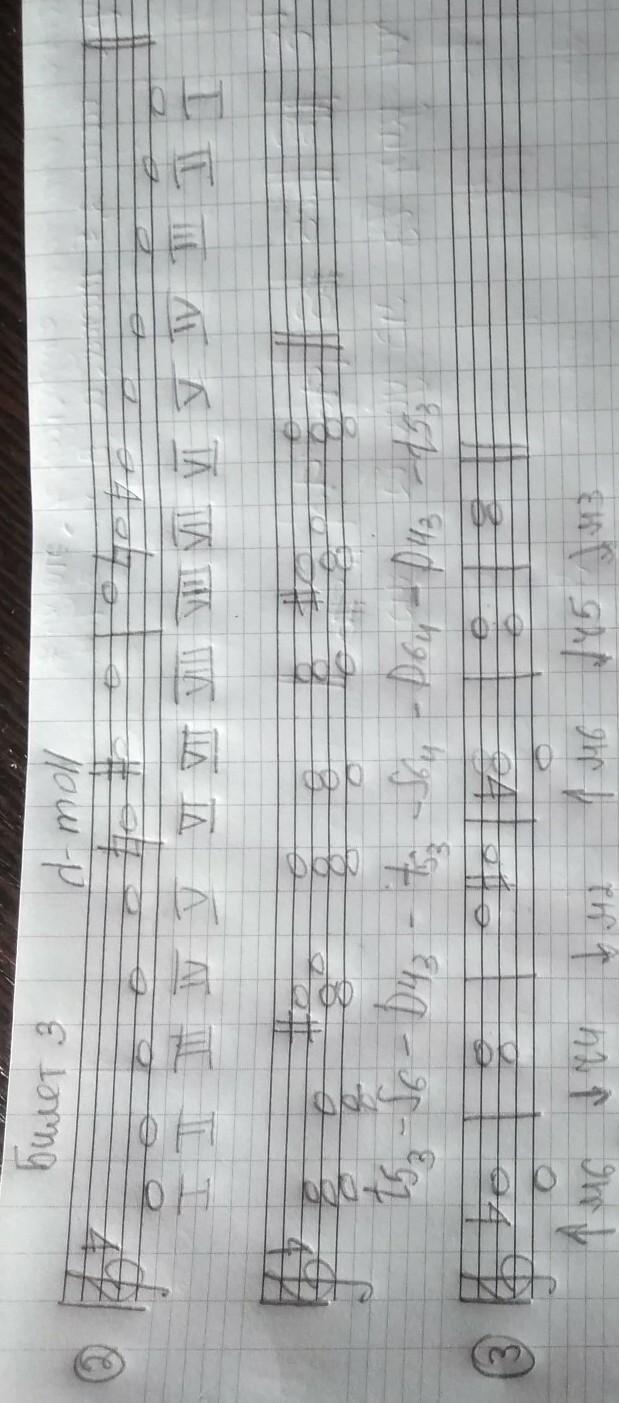 Билет 3 d-moll
2
I II III IV V VI VII VIII VIII VII VI V IV III II I
t53 - S6 - D43 - t53 - S64 - D64 - D43 - t53
3
↑м6 ↓ч4 ↓м2 ↑м6 ↓ч5 ↓м3